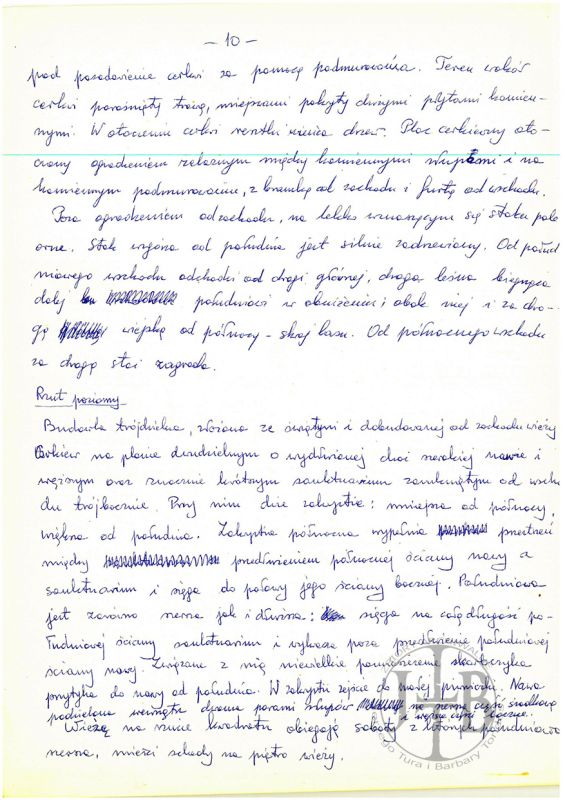 - 10 -
pod posadowienie cerkwi za pomocą podmurowania. Teren wokół
cerkwi porośnięty trawą, miejscami pokryty dużymi płytami kamien-
nymi. W otoczeniu cerkwi resztki wieńca drzew. Plac cerkiewny oto-
czony ogrodzeniem żelaznym między kamiennymi słupkami i na
kamiennym podmurowaniu, z bramką od zachodu i furtką od wschodu.
Poza ogrodzeniem od zachodu, na lekko wznoszącym się stoku pola
orne. Stok wzgórza od południa jest silnie zadrzewiony. Od połud
niowego wschodu odchodzi od drogi głównej, droga leśna biegnąca
dalej południości w obniżeniu i obok niej i za dro-
gą wiejską od północy - skraj lasu. Od północnego wschodu
za drogą stoi zagroda.
Rzut poziomy
Budowla trójdzielna, złożona ze świątyni i dobudowanej od zachodu wieży
Cerkiew na planie dwudzielnym o wydłużonej choć szerokiej nawie i
węższym oraz znacznie krótszym sanktuarium zamkniętym od wscho
du trójbocznie. Przy nim dwie zakrystie: mniejsza od północy,
większa od południa. Zakrystia północna wypełnia przestrzeń
między przedłużeniem północnej ściany nawy a
sanktuarium i sięga do połowy jego ściany bocznej. Południowa
jest zarówno szersza jak i dłuższa: sięga na całą długość po-
łudniowej ściany sanktuarium i wykracza poza przedłużenie południowej
ściany nawy. Związane z nią niewielkie pomieszczenie skarbczyka
przytyka do nawy od południa. W zakrystii zejście do małej piwniczki. Nawa
podzielona wewnątrz dwoma parami słupów na szerszą część środkową
i węższe części boczne.
Wieżę na rzucie kwadratu obiegają soboty z których południowa
szersza, mieści schody na piętro wieży.
Tura i Barbary Tur